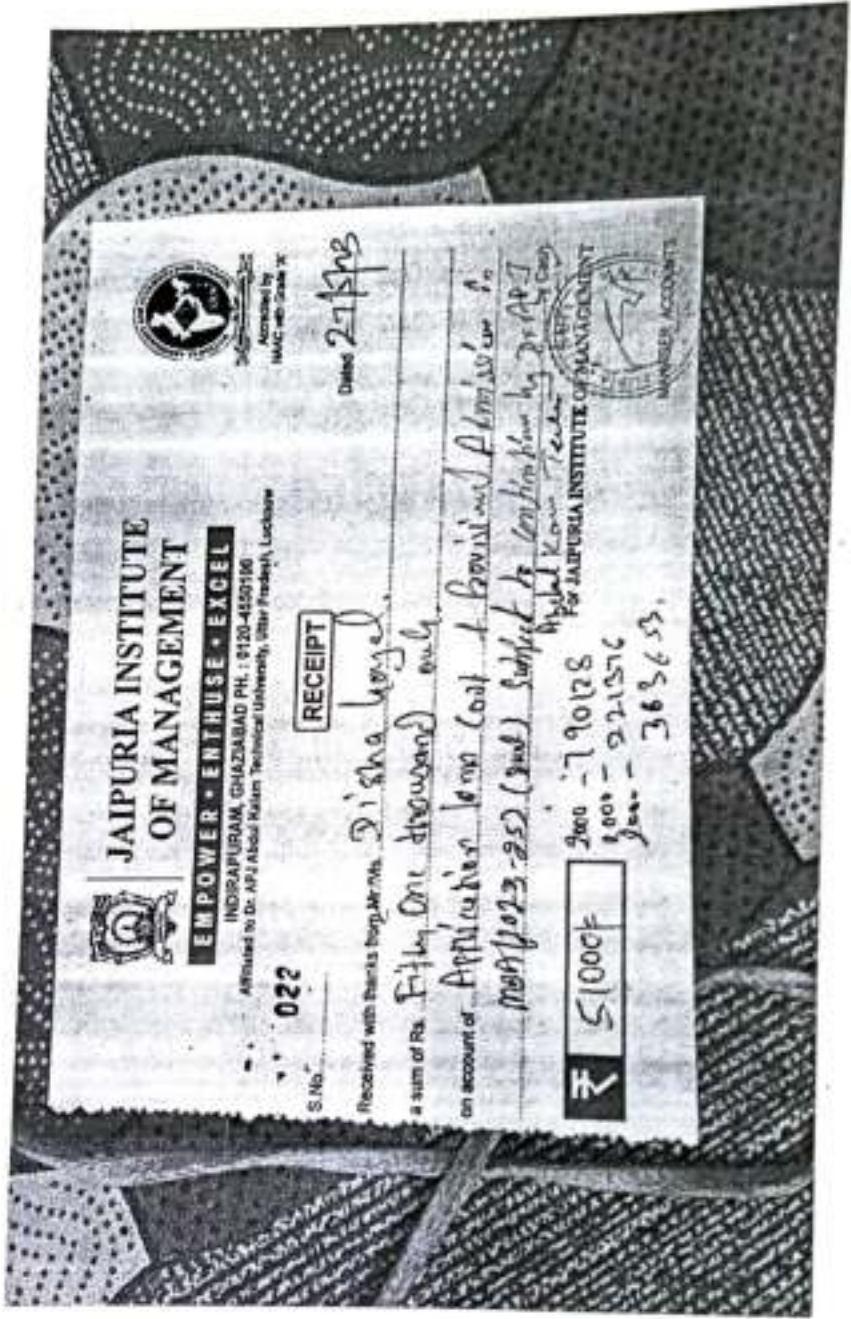 JAIPURIA INSTITUTE
OF MANAGEMENT
EMPOWER • ENTHUSE • EXCEL
INDIRAPURAM, GHAZIABAD PH. : 0120-4550100
Affiliated to Dr. APJ Abdul Kalam Technical University, Uttar Pradesh, Lucknow
Accredited by
NAAC with Grade
022
S.No.
RECEIPT
Dated
Received with thanks from Mr/Ms. Disha Goyal
a sum of Rs. Fifty One thousand only
on account of Application form Cost & Provisional Admission in
MBA (2023-25) Subject to Confirmation by Dr APJ
Abdul Kalam
₹ 51000/-
For JAIPURIA INSTITUTE OF MANAGEMENT
2000 - 790128
2000 - 221376
363653.
MANAGER ACCOUNTS